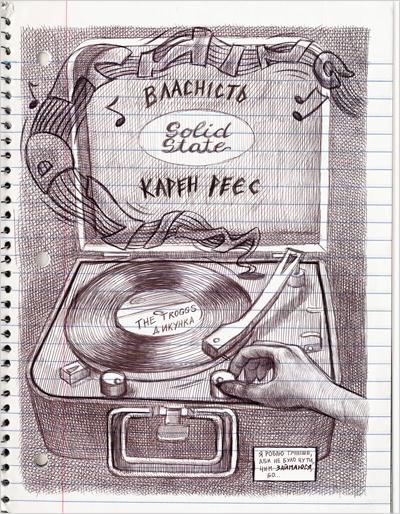 ВЛАСНІСТЬ
Solid
State
КАРЕН РЕЄС
THE TROGGS
ДИКУНКА
Я РОБЛЮ ГУЧНІШЕ,
АБИ НЕ БУЛО ЧУТИ,
ЧИМ ЗАЙМАЮСЯ,
БО...